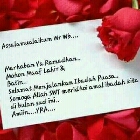 Assalamualaikum Wr Wb....
Marhaban Ya Ramadhan..
Mohon Maaf Lahir &
Batin..
Selamat Menjalankan Ibadah Puasa..
Semoga Allah SWT meridhoi amal ibadah kita
di bulan suci ini..
Amiin....YRA....